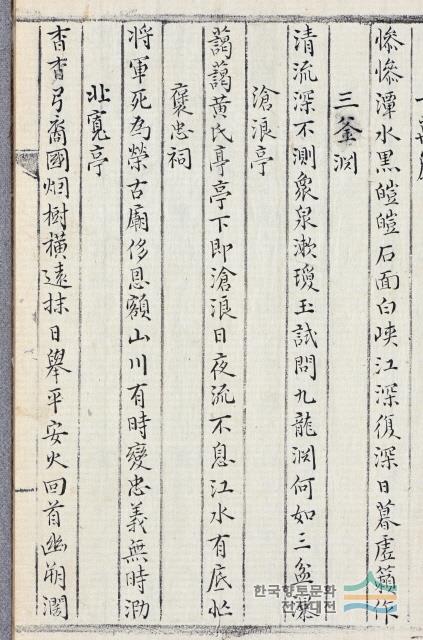 慘慘潭水黑皚皚石面白峽江深復深日暮虛籟作
三釜淵
清流深不測衆泉漱瓊玉試問九龍淵何如三盆瀑
滄浪亭
藹藹黃氏亭亭下即滄浪日夜流不息江水有底忙
褒忠祠
將軍死為榮古廟侈恩額山川有時變忠義無時泐
北寬亭
杳杳弓裔國烟樹橫遠抹日擧平安火回首幽朔濶
한국향토문화
전자대전